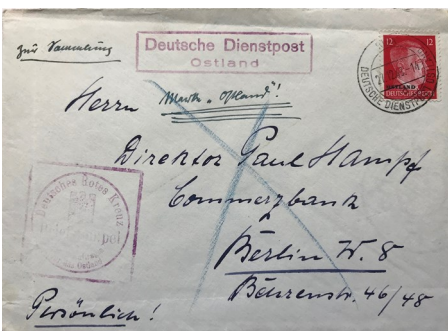 zur Sammlung
Deutsche Dienstpost
Ostland
12 12
OSTLAND
DEUTSCHES REICH
DEUTSCHE DIENSTPOST
Marke „Ostland"!
Herrn
Direktor Paul Hampf
Commerzbank
Berlin W. 8
Behrenstr. 46/48
Deutsches Rotes Kreuz
Persönlich!